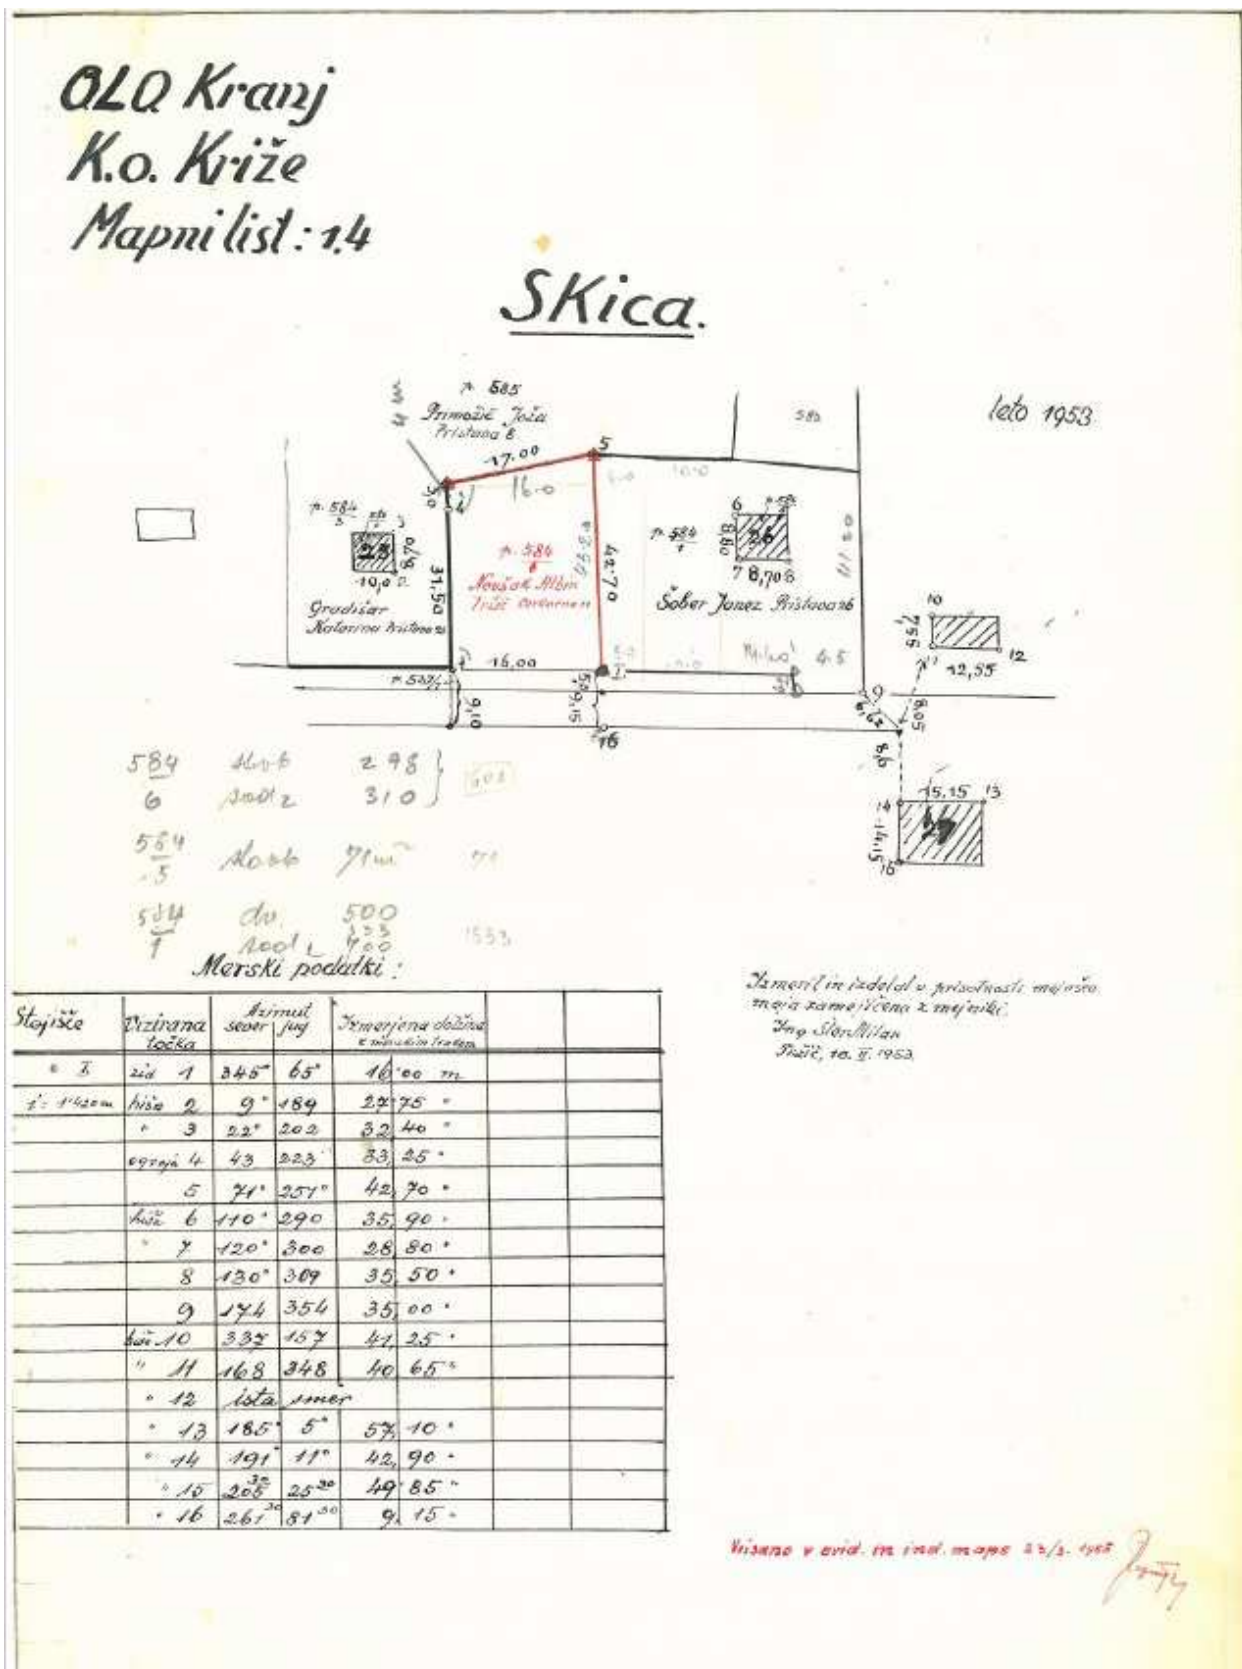 OLO Kranj
K.o. Križe
Mapni list: 1,4
Skica.
leto 1953
p. 585
Primožič Joža
Pristava 8
585
17.00
5
16.0
10.0
3,0
4
p. 584/3
23
3
8,70
10,0
2
Gradišar
Katarina Pristava
31,50
p. 584/6
Novšak Albin
Tržič
42.70
p. 584/1
6
26
8,80
7
8,70
8
Šober Janez Pristava 26
4.5
1
16,00
9,10
9,15
16
9
10
7,55
11
12
12,55
8,05
15,15
13
14
14,15
27
584/6
298
310
584/5
71 m²
71
584/1
dv.
500
333
700
1533
Merski podatki:
Stojišče Vizirana točka Azimut sever jug Izmerjena dolžina
I. zid 1 345° 65° 16.00 m
i = 1.420 m hiša 2 9° 189 27,75 "
" 3 22° 202 32,40 "
ograja 4 43 223 33,25 "
5 71° 251° 42,70 "
hiša 6 110° 290 35,90 "
" 7 120° 300 28,80 "
8 130° 309 35,50 "
9 174 354 35,00 "
hiš. 10 337 157 41,25 "
" 11 168 348 40,65 "
" 12 ista smer
" 13 185° 5° 57,10 "
" 14 191° 11° 42,90 "
" 15 205 30 25 30 49.85 "
" 16 261 30 81 30 9,15 "
Izmeril in izdelal v prisotnosti mejašev
meja zamejičena z mejniki.
Ing. Milan
Tržič, 10. II. 1953
Vrisano v evid. in ind. mapo